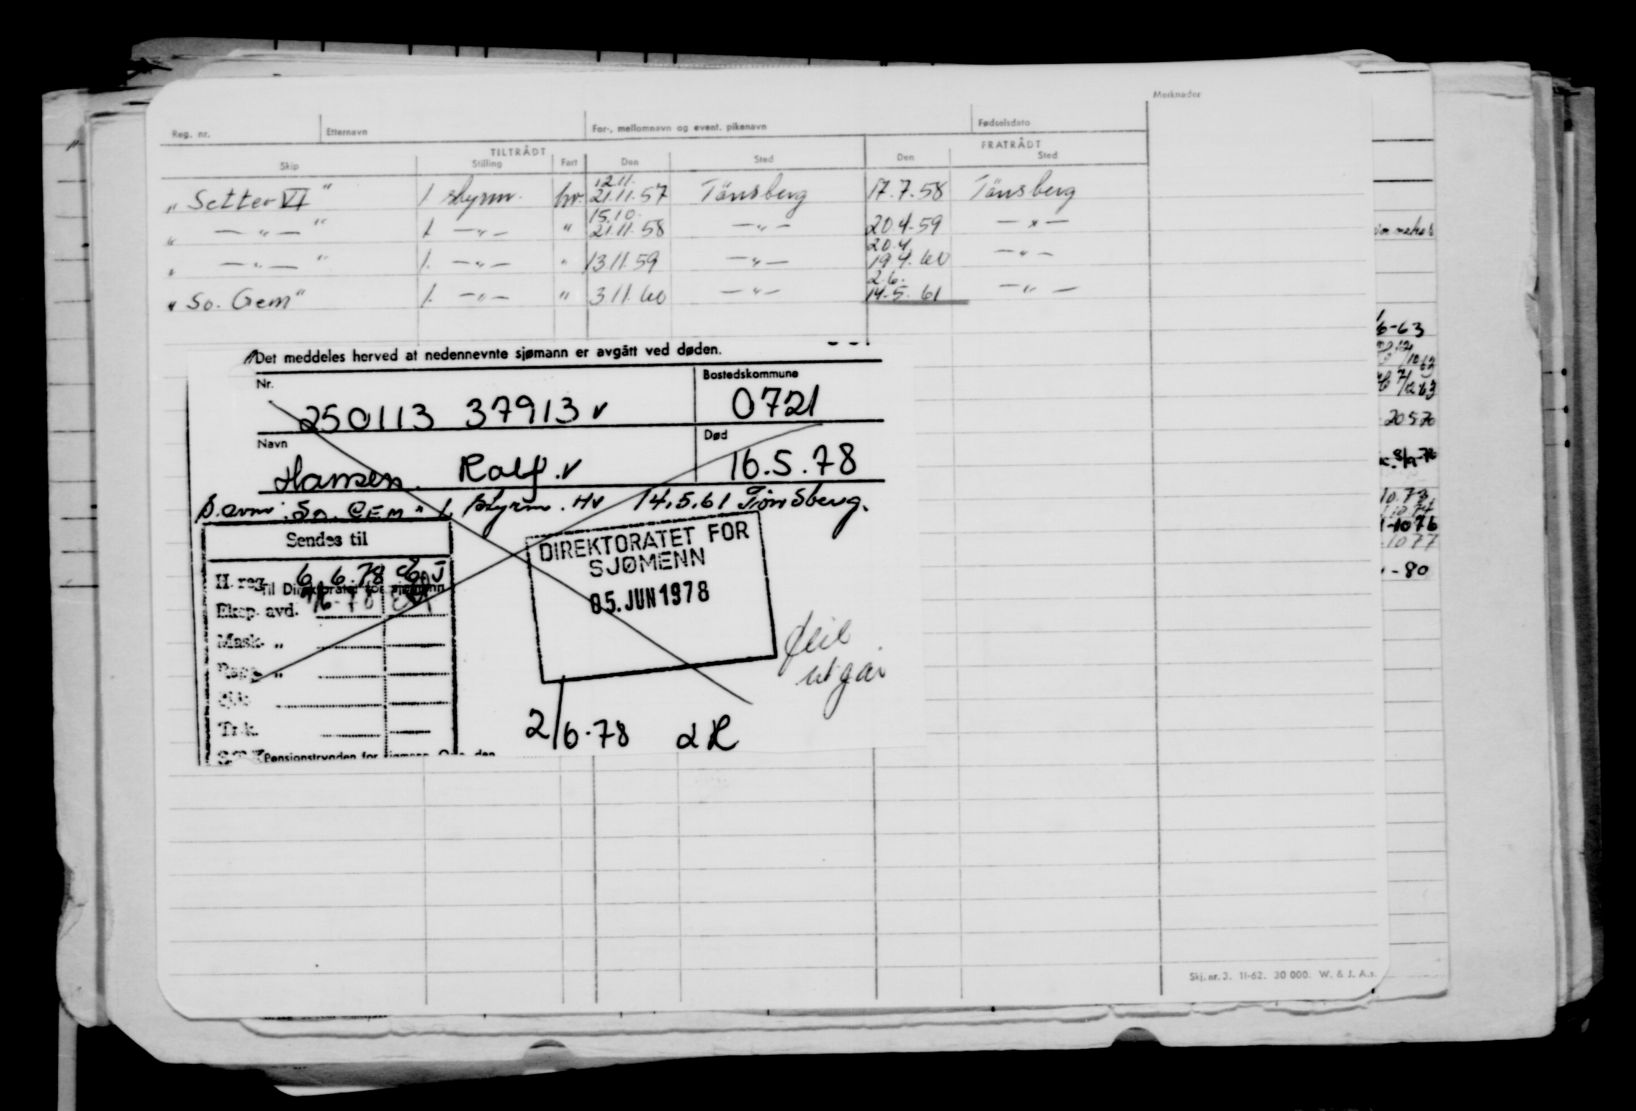 Merknader
Reg. nr. Etternavn For-, mellomnavn og event. pikenavn Fødselsdato
TILTRÅDT FRATRÅDT
Skip Stilling Fart Den Sted Den Sted
12.11.
"Setter VI" 1 styrm. hv. 21.11.57 Tönsberg 17.7.58 Tönsberg
15.10.
" — " — " 1 — " — " 21.11.58 — " — 20.4.59 — " —
20.4
" — " — " 1. — " — " 13.11.59 — " — 19.4.60 — " —
2.6.
"So. Gem" 1. — " — " 3.11.60 — " — 14.5.61 — " —
Det meddeles herved at nedennevnte sjømann er avgått ved døden.
Nr. Bostedskommune
250113 37913 v 0721
Navn Død
Hansen Ralf. v 16.5.78
"So. GEM" 1. styrm. Hv 14.5.61 Tönsberg.
Sendes til
H. reg. 6.6.78
Til Direktoratet for sjømenn
Eksp. avd.
Mask. "
Tr.k.
Pensionstrygden for
DIREKTORATET FOR
SJØMENN
05. JUN 1978
feil
utgår
2/6-78
6-63
20.5.70
10.73
1-1076
1077
-80
Skj. nr. 3. 11-62. 30 000. W. & J. A.s.